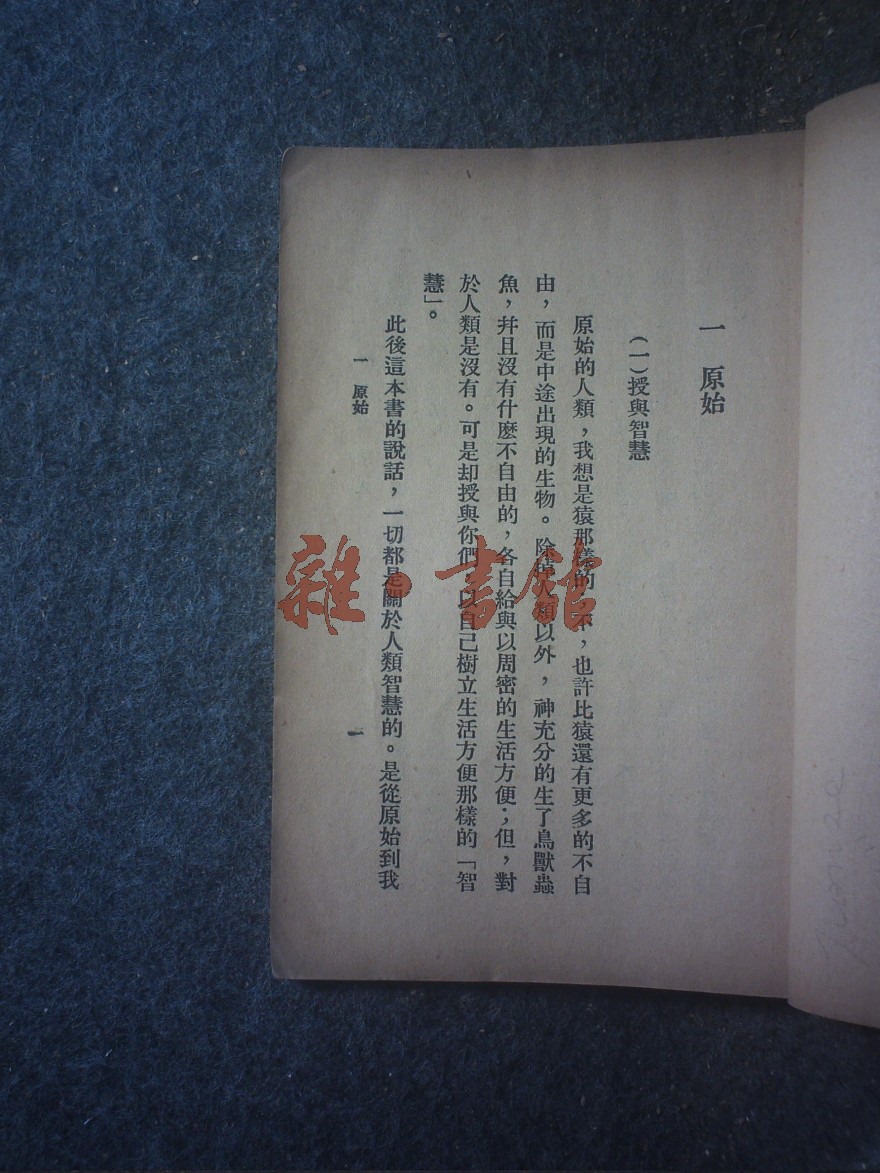 一 原始
(一)授與智慧
原始的人類，我想是猿那樣的 不，也許比猿還有更多的不自
由，而是中途出現的生物。除掉人類以外，神充分的生了鳥獸蟲
魚，幷且沒有什麼不自由的，各自給與以周密的生活方便；但，對
於人類是沒有。可是却授與你們 以自己樹立生活方便那樣的「智
慧」。
此後這本書的說話，一切都是關於人類智慧的。是從原始到我
一 原始
一
雜·書館